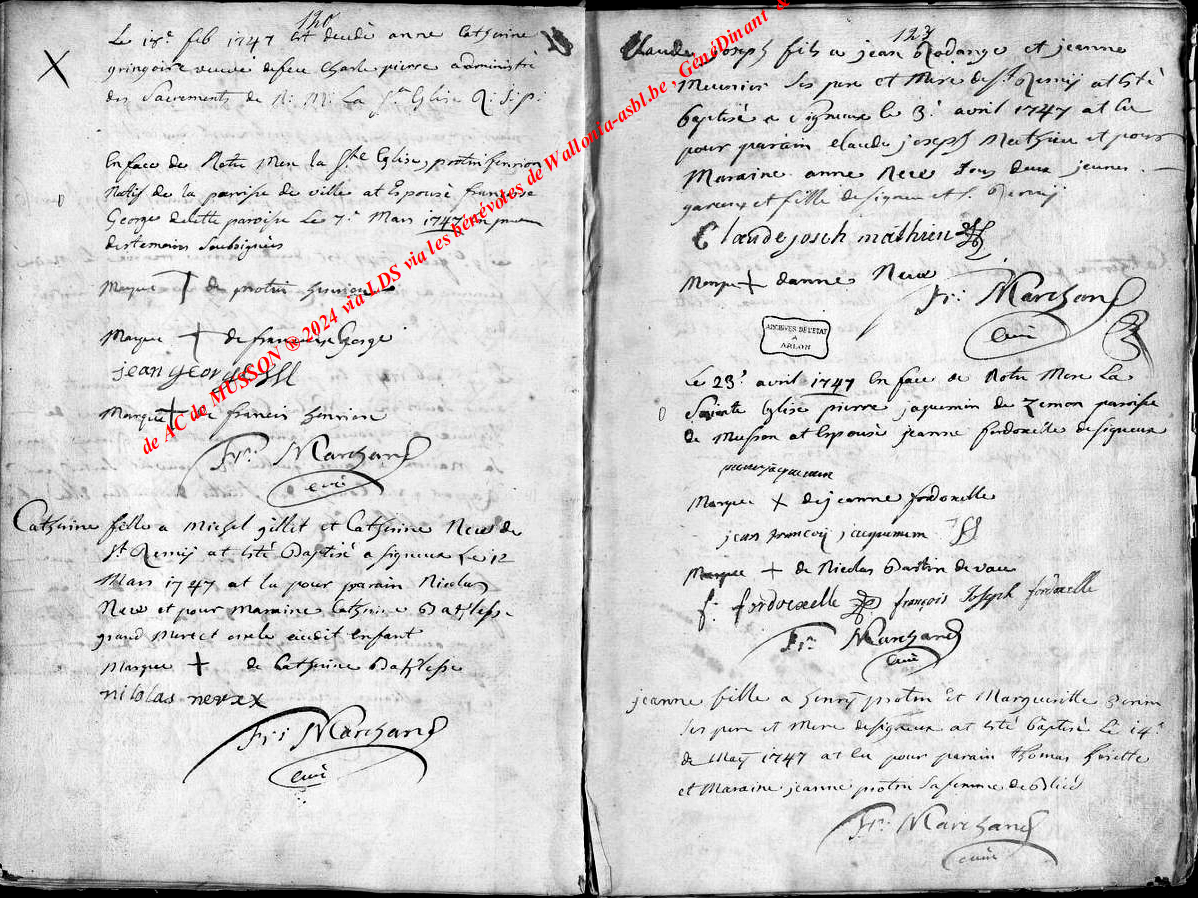 120
Le 15e feb 1747 est decedé anne Catherine
gringoire veuve defeu Charle pierre administré
des Sacrements de N: M: La Ste Eglise R: J: p:
En face de Notre Mere la Ste Eglise, protin henrion
Natif de la paroise de ville at Espousé françoise
George de cette paroise Le 7e Mars 1747 en
des temoins Soubsignés
Marque + de protin henrion
Marque + de françoise George
jean george
Marque + de francis henrion
Fr: Marchand
curé
Catherine fille a Michel gillet et Catherine New de
St Remij at esté Baptisé a Signeux Le 12
Mars 1747 at eu pour parain Nicolas
New et pour Maraine Catherine
grand Mere et oncle audit Enfant
Marque + de Catherine
nicolas nevex
Fr: Marchand
curé
123
Claude Joseph fils a jean Rodange et jeanne
Meunier Ses pere et Mere de St Remij at esté
Baptisé a Signeux le 3e avril 1747 at eu
pour parain claude joseph Mathieu et pour
Maraine anne New Tous deux jeunes
garçon et fille de signeux et St Remij
Claude joseh mathieu
Marque + danne New
Fr: Marchand
curé
ARCHIVES DE L'ETAT
A
ARLON
Le 23e avril 1747 En face de Notre Mere La
Sainte Eglise pierre jaquemin de paroise
de Musson at Espousé jeanne fordoxelle de signeux
pierre jacquemin
Marque + de jeanne fordoxelle
jean francois jacquemin
Marque + de Nicolas de vaux
f: fordoxelle françois Joseph fordoxelle
Fr: Marchand
curé
jeanne fille a henrij protin Et Margueritte
Ses pere et Mere de signeux at esté baptisé Le 14e
de Maij 1747 at eu pour parain thomas
et Maraine jeanne protin Sa femme de
Fr: Marchand
curé
de AC de MUSSON ® 2024 via LDS via les bénévoles de Wallonia-asbl.be - GénéDinant &